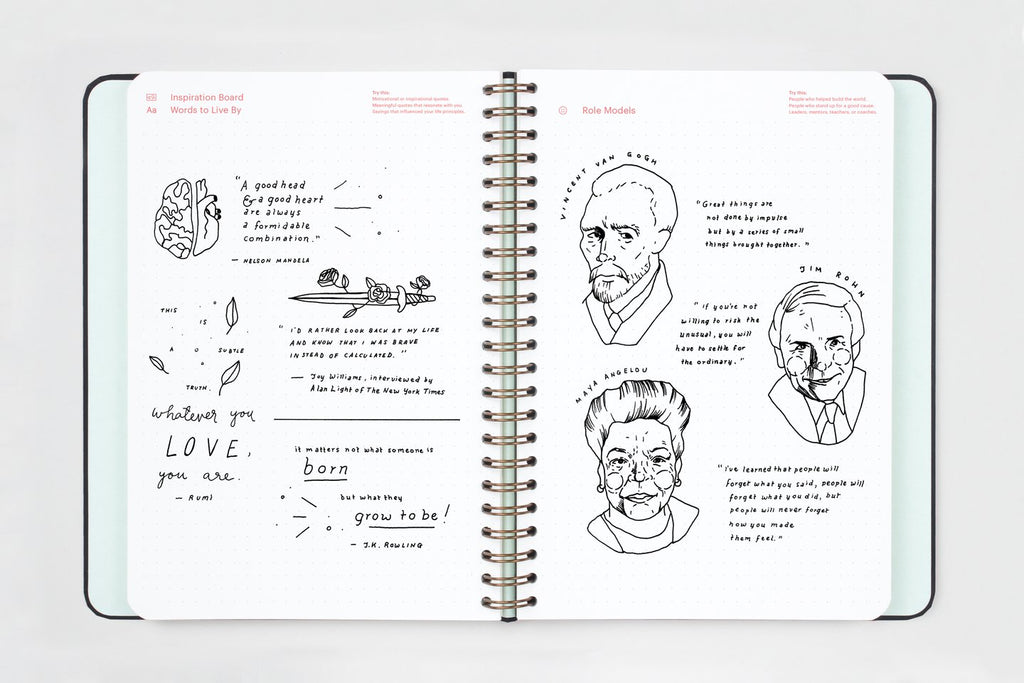 Inspiration Board
Aa Words to Live By
Try this:
Motivational or inspirational quotes.
Meaningful quotes that resonate with you.
Sayings that influenced your life principles.
"A good head
& a good heart
are always
a formidable
combination."
— NELSON MANDELA
"I'D RATHER LOOK BACK AT MY LIFE
AND KNOW THAT I WAS BRAVE
INSTEAD OF CALCULATED."
— Joy Williams, interviewed by
Alan Light of The New York Times
THIS
IS
A SUBTLE
TRUTH.
whatever you
LOVE,
you are.
— RUMI
it matters not what someone is
born
but what they
grow to be!
— J.K. ROWLING
Role Models
Try this:
People who helped build the world.
People who stand up for a good cause.
Leaders, mentors, teachers, or coaches.
VINCENT VAN GOGH
"Great things are
not done by impulse
but by a series of small
things brought together."
JIM ROHN
"if you're not
willing to risk the
unusual, you will
have to settle for
the ordinary."
MAYA ANGELOU
"i've learned that people will
forget what you said, people will
forget what you did, but
people will never forget
how you made
them feel."